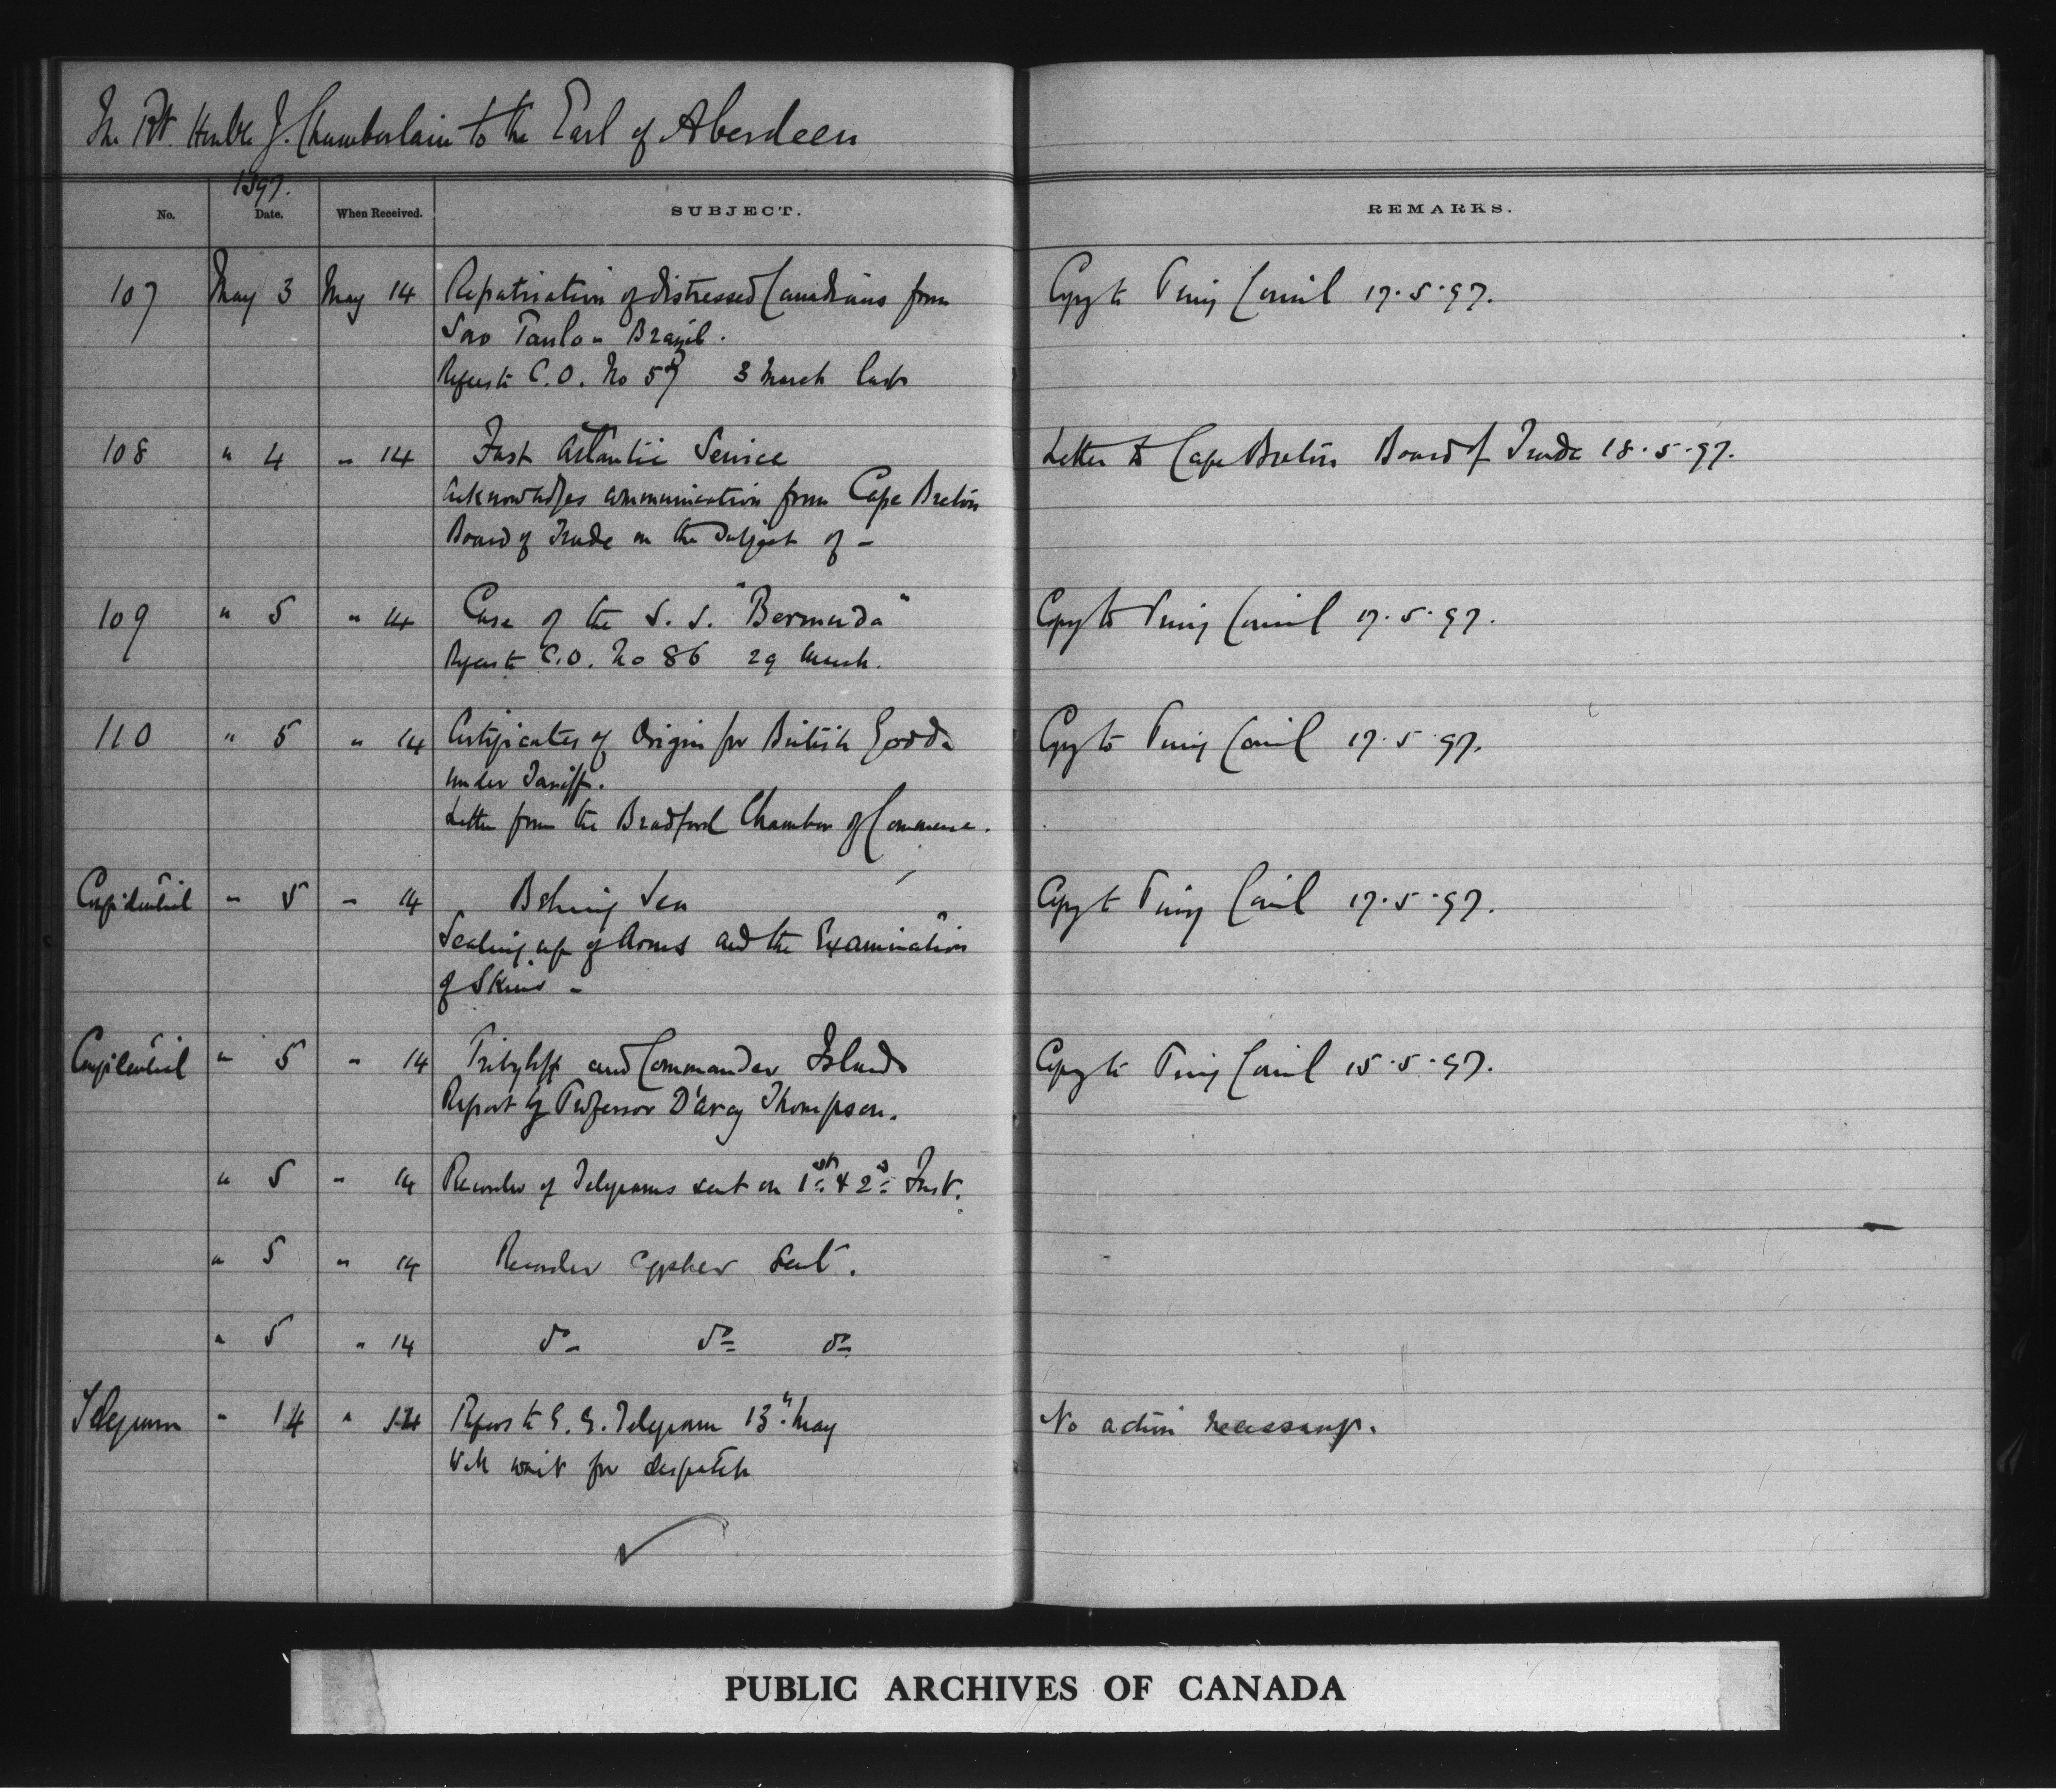 The Rt. Honble J. Chamberlain to the Earl of Aberdeen
1897.
No. Date. When Received. SUBJECT. REMARKS.
107 May 3 May 14 Repatriation of distressed Canadians from Copy to Privy Council 17.5.97.
Sao Paulo - Brazil.
Refers to C.O. No 57 3 March last
108 " 4 " 14 Fast Atlantic Service Letter to Cape Breton Board of Trade 18.5.97.
Acknowledges communication from Cape Breton
Board of Trade on the subject of -
109 " 5 " 14 Case of the S. S. "Bermuda" Copy to Privy Council 17.5.97.
Refers to C.O. No 86 29 March.
110 " 5 " 14 Certificates of Origin for British Goods Copy to Privy Council 17.5.97.
under Tariff.
Letter from the Bradford Chamber of Commerce.
Confidential " 5 " 14 Behring Sea Copy to Privy Council 17.5.97.
Sealing up of Arms and the Examination
of Skins -
Confidential " 5 " 14 Pribyloff and Commander Islands Copy to Privy Council 15.5.97.
Report by Professor D'Arcy Thompson.
" 5 " 14 Recorder of Telegrams sent on 1st & 2d Inst.
" 5 " 14 Recorder cypher sent.
" 5 " 14 do do do
Telegram " 14 " 14 Refers to G. G. Telegram 13th May No action necessary.
Will wait for despatch
PUBLIC ARCHIVES OF CANADA